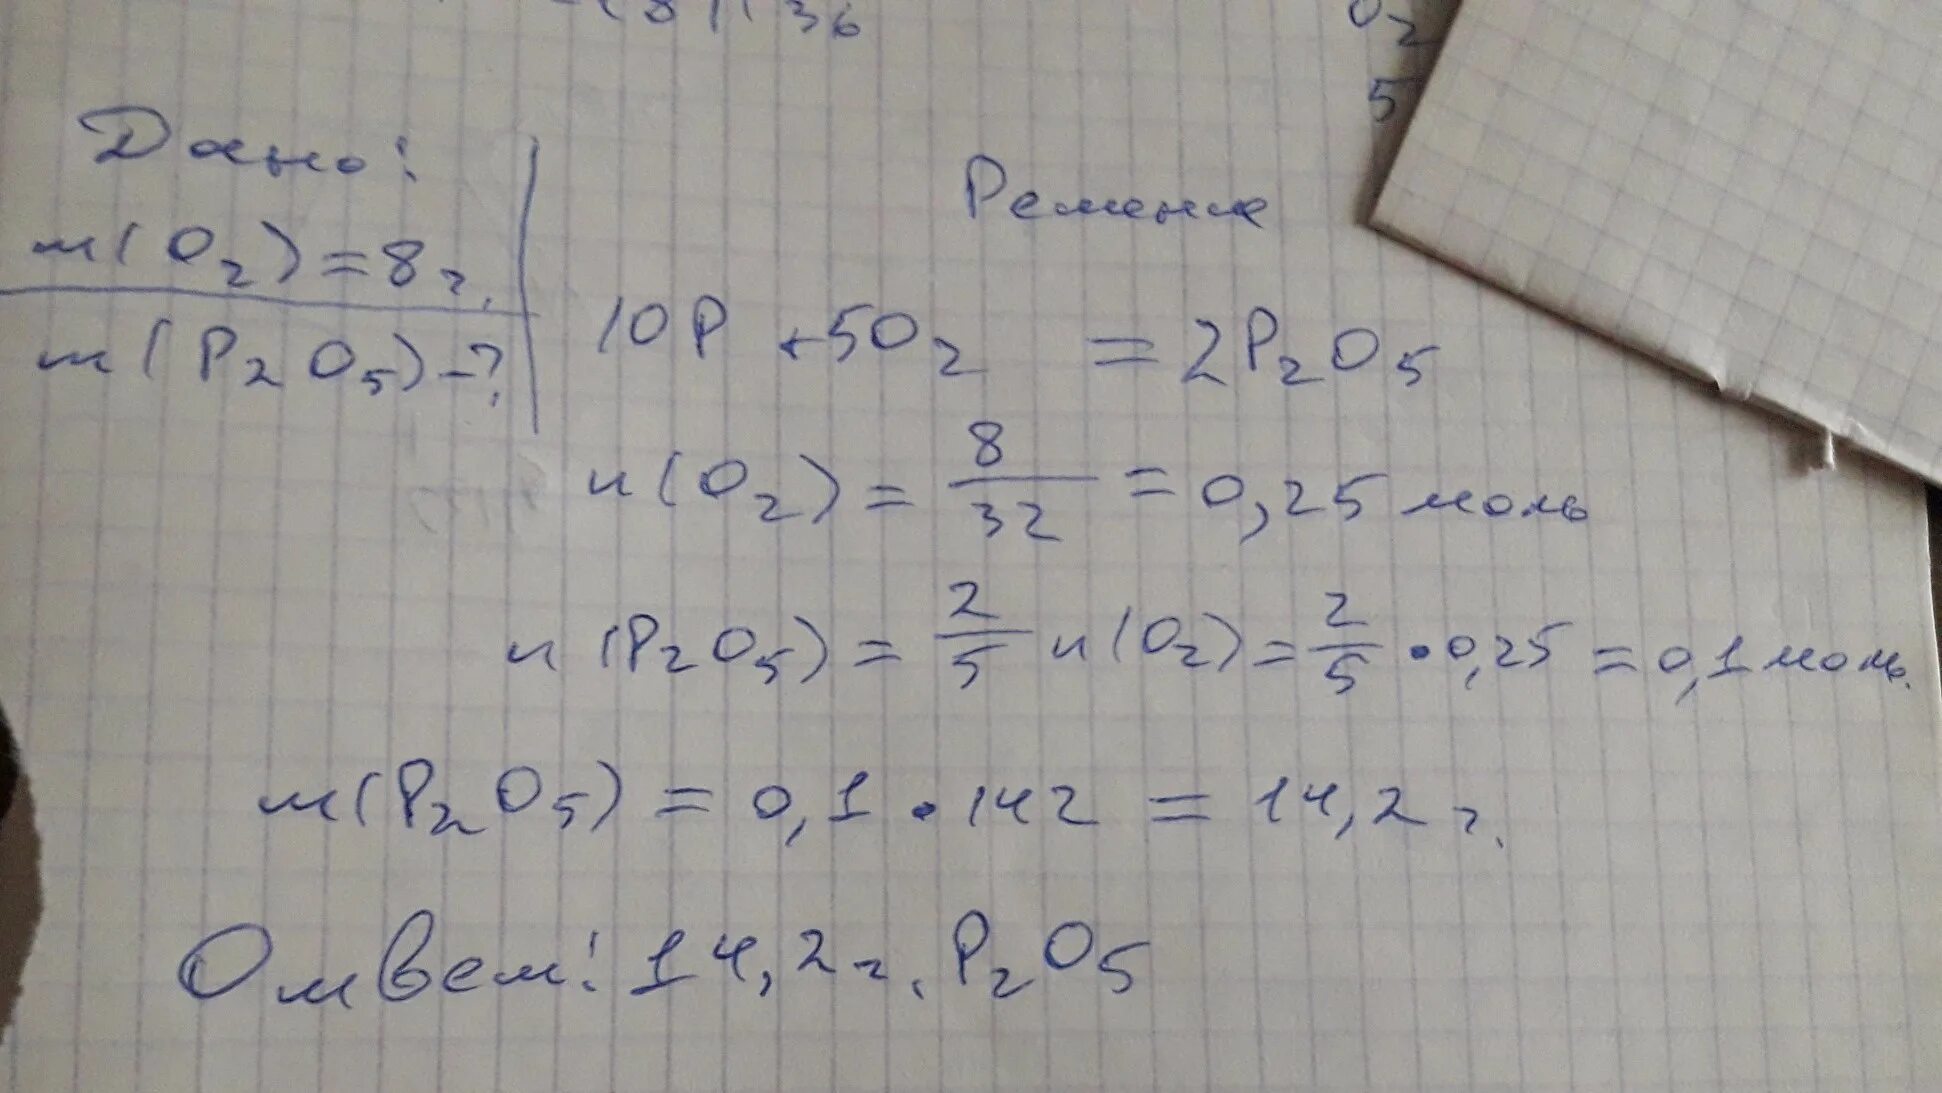 36
O2
5
Дано:
m(O2)=8г.
m(P2O5)-?
Решение
10P + 5O2 = 2P2O5
n(O2) = 8/32 = 0,25 моль
n(P2O5) = 2/5 n(O2) = 2/5 • 0,25 = 0,1 моль.
m(P2O5) = 0,1 • 142 = 14,2 г.
Ответ: 14,2 г. P2O5